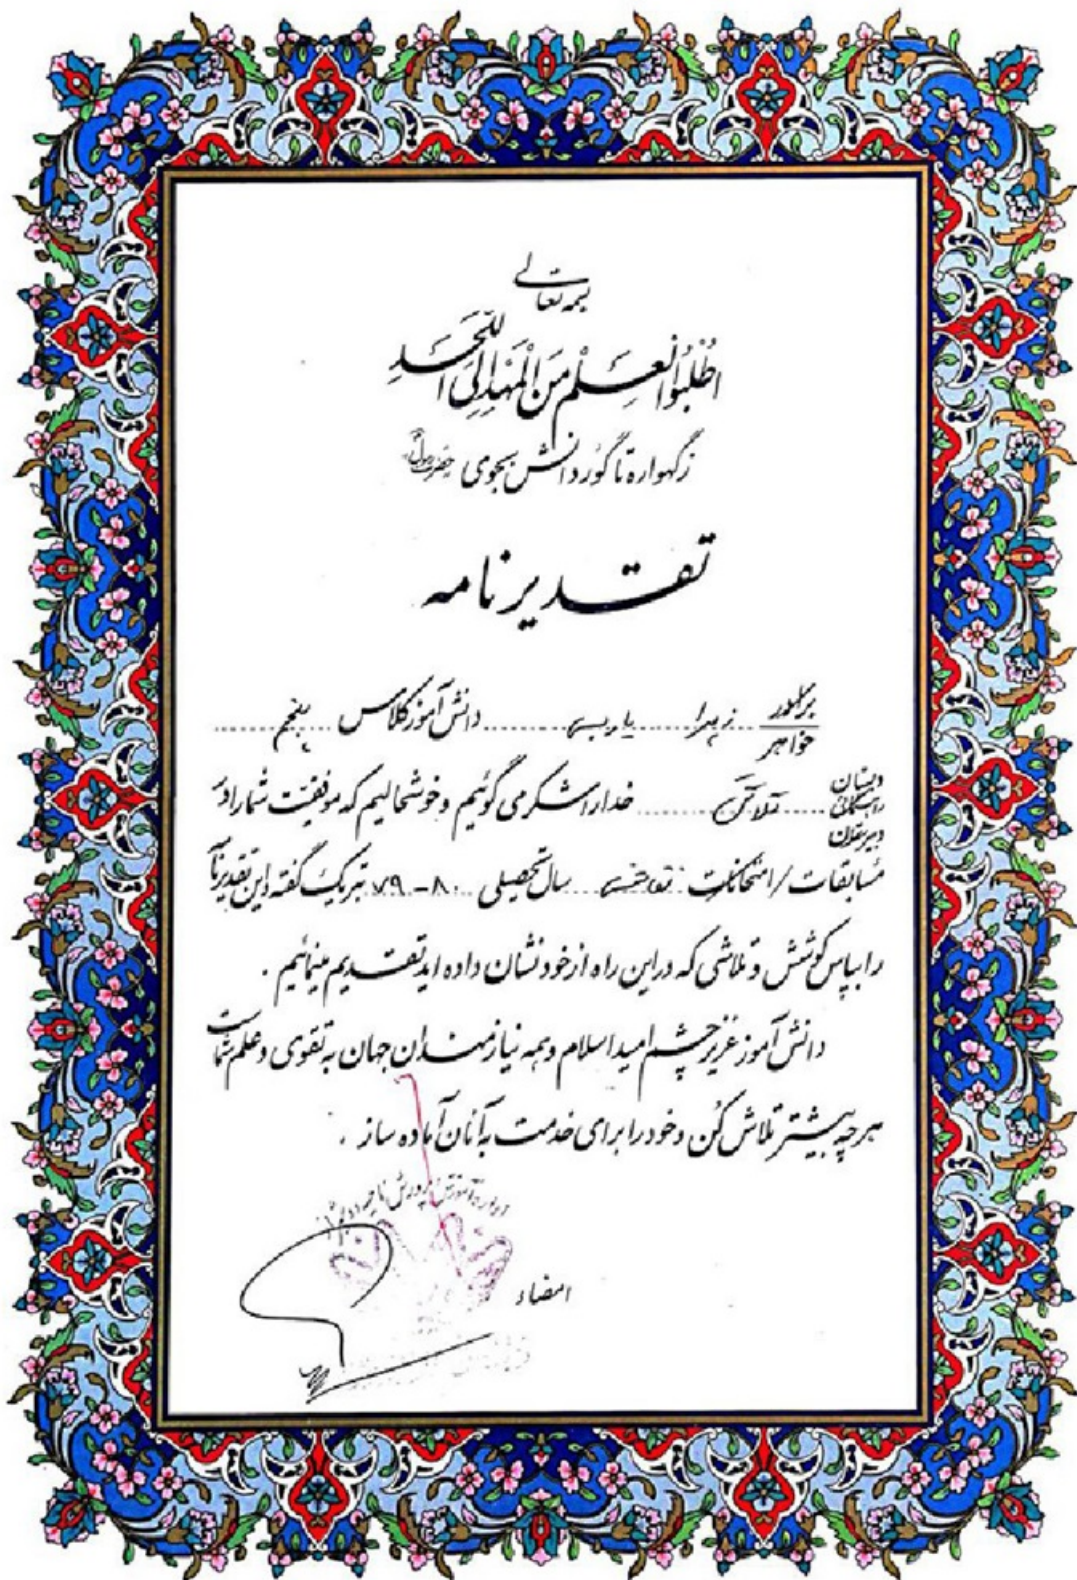 بسمه تعالی
اُطْلُبُوا الْعِلْمَ مِنَ الْمَهْدِ اِلَی اللَّحَدِ
زگهواره تا گور دانش بجوی حضرت رسول
تقدیرنامه
برادر
خواهر زهرا دانش آموز کلاس پنجم
دبستان
راهنمایی
دبیرستان خدا را شکر می گوئیم و خوشحالیم که موفقیت شما را در
مسابقات / امتحانات سال تحصیلی ۸۰-۷۹ تبریک گفته و این تقدیرنامه
را بپاس کوشش و تلاشی که در این راه از خود نشان داده اید تقدیم مینمائیم .
دانش آموز عزیز چشم امید اسلام و همه نیازمندان جهان به تقوی و علم شماست
هر چه بیشتر تلاش کن و خود را برای خدمت به آنان آماده ساز .
امضاء